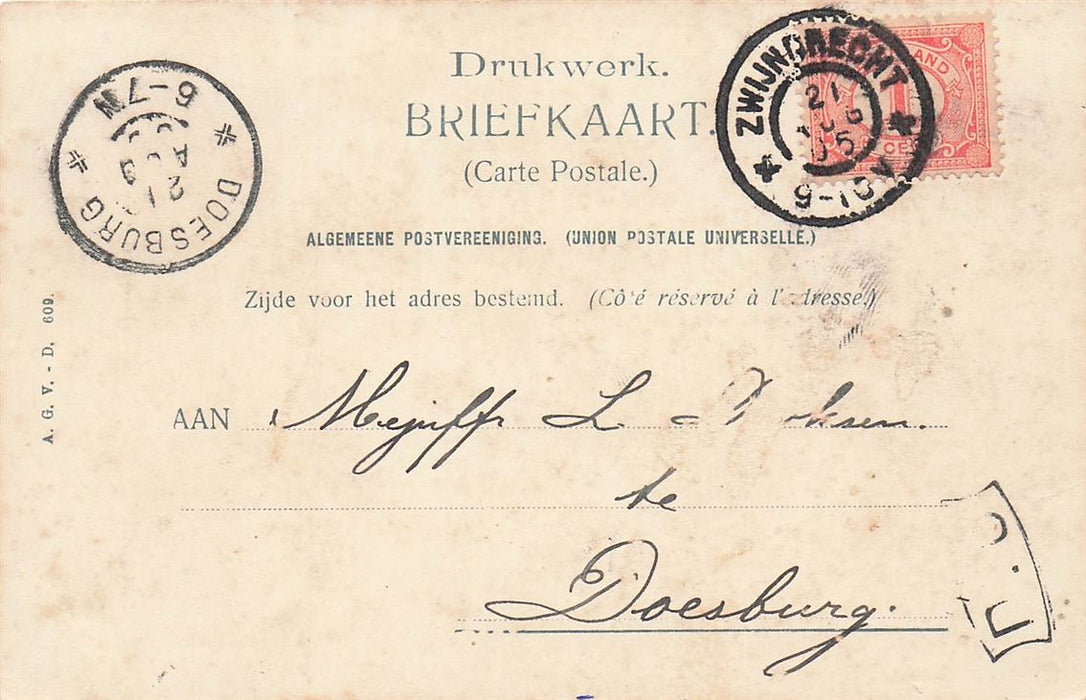 Drukwerk.
BRIEFKAART.
(Carte Postale.)
ALGEMEENE POSTVEREENIGING. (UNION POSTALE UNIVERSELLE.)
Zijde voor het adres bestemd. (Côté réservé à l'adresse.)
ZWIJNDRECHT
21
AUG
05
9-10V
CENT
DOESBURG
6-7N
21
AUG
A. G. V. - D. 609.
AAN Mejuffr L.
te
Doesburg.